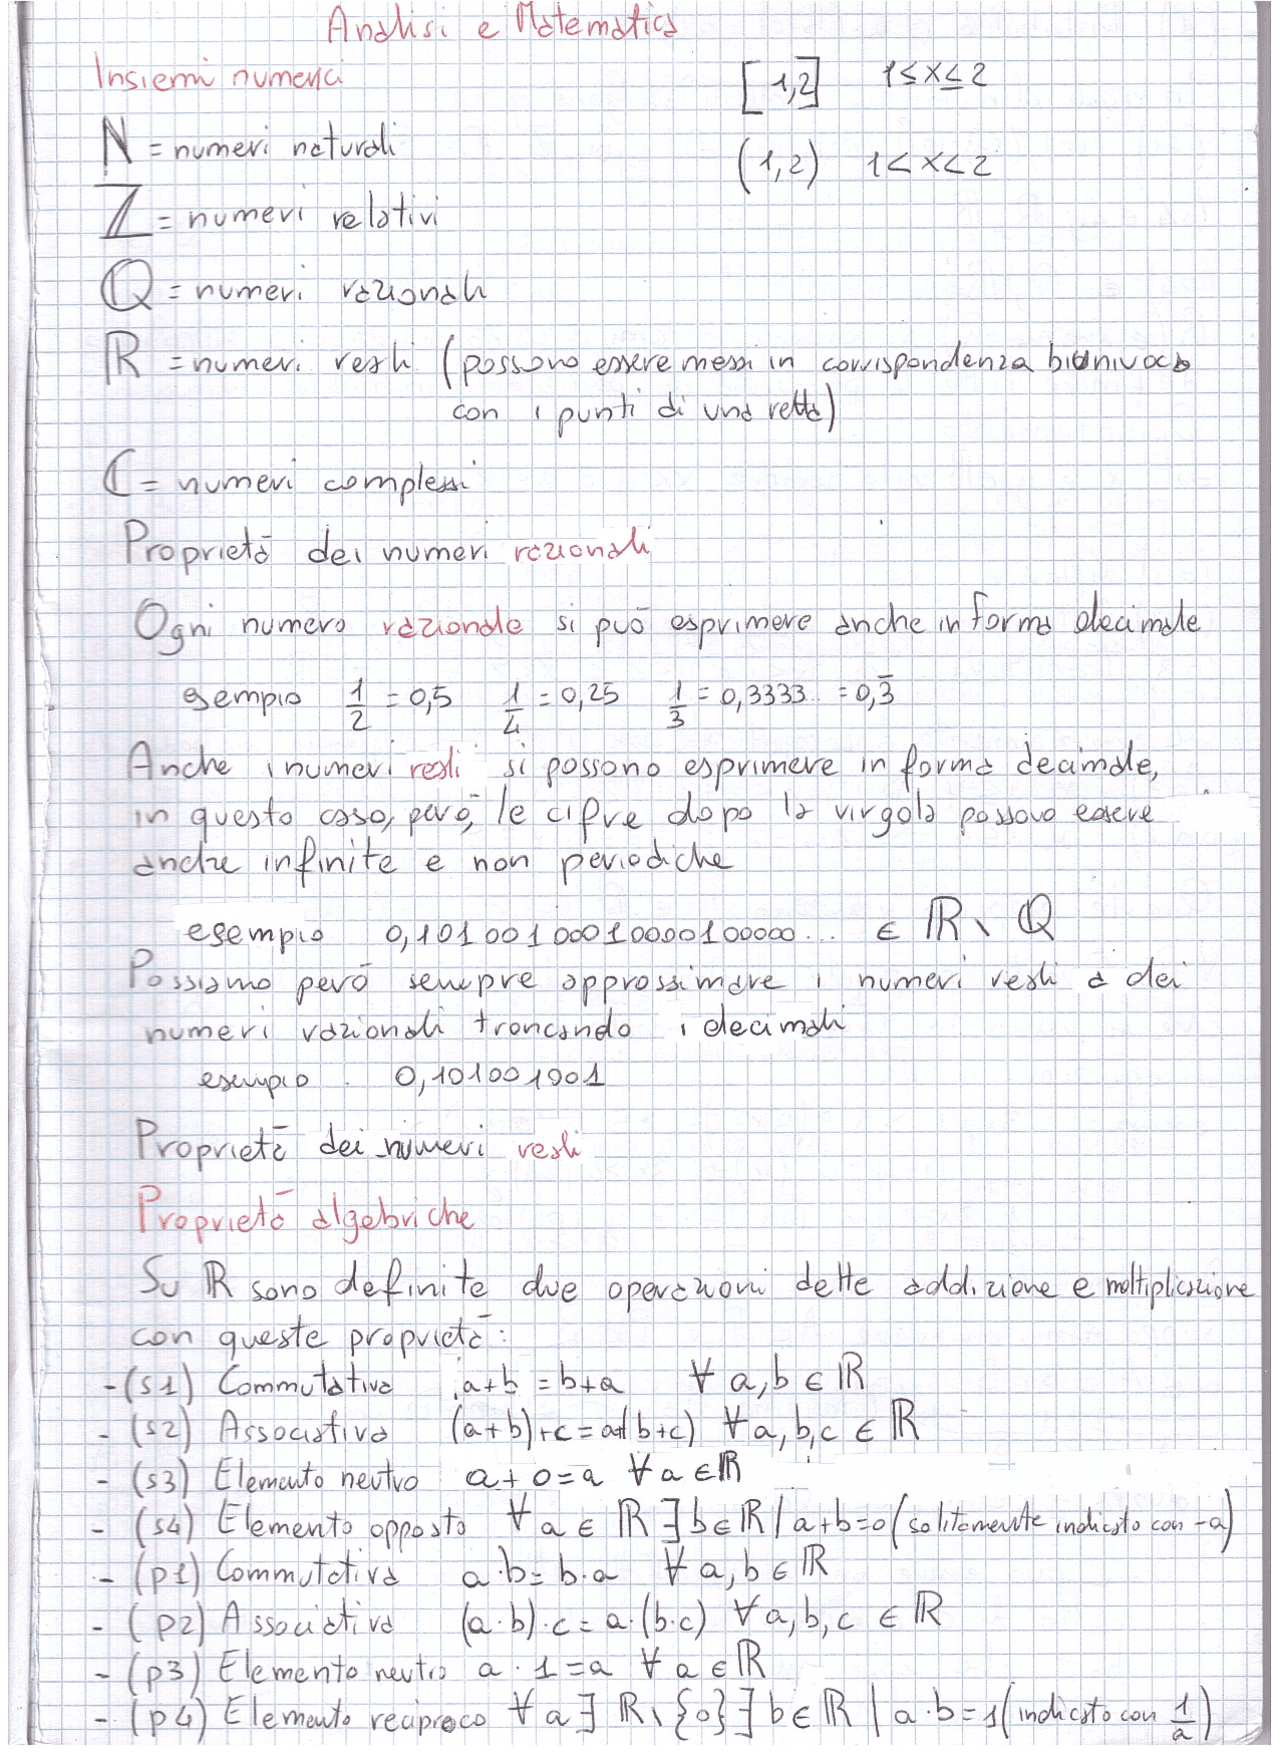 Analisi e Matematica
Insiemi numerici
[1,2] 1≤x≤2
ℕ = numeri naturali
(1,2) 1<x<2
ℤ = numeri relativi
ℚ = numeri razionali
ℝ = numeri reali (possono essere messi in corrispondenza biunivoca
con i punti di una retta)
ℂ = numeri complessi
Proprietà dei numeri razionali
Ogni numero razionale si può esprimere anche in forma decimale
esempio 1/2 = 0,5 1/4 = 0,25 1/3 = 0,3333.. = 0,3̄
Anche i numeri reali si possono esprimere in forma decimale,
in questo caso, però, le cifre dopo la virgola possono essere
anche infinite e non periodiche
esempio 0,10100100010000100000... ∈ ℝ \ ℚ
Possiamo però sempre approssimare i numeri reali a dei
numeri razionali troncando i decimali
esempio 0,101001001
Proprietà dei numeri reali
Proprietà algebriche
Su ℝ sono definite due operazioni dette addizione e moltiplicazione
con queste proprietà:
- (s1) Commutativa a+b = b+a ∀ a,b ∈ ℝ
- (s2) Associativa (a+b)+c = a+(b+c) ∀ a,b,c ∈ ℝ
- (s3) Elemento neutro a+0=a ∀ a ∈ ℝ
- (s4) Elemento opposto ∀ a ∈ ℝ ∃ b ∈ ℝ | a+b=0 (solitamente indicato con -a)
- (p1) Commutativa a·b = b·a ∀ a,b ∈ ℝ
- (p2) Associativa (a·b)·c = a·(b·c) ∀ a,b,c ∈ ℝ
- (p3) Elemento neutro a·1=a ∀ a ∈ ℝ
- (p4) Elemento reciproco ∀ a ∃ ℝ \ {0} ∃ b ∈ ℝ | a·b=1 (indicato con 1/a)